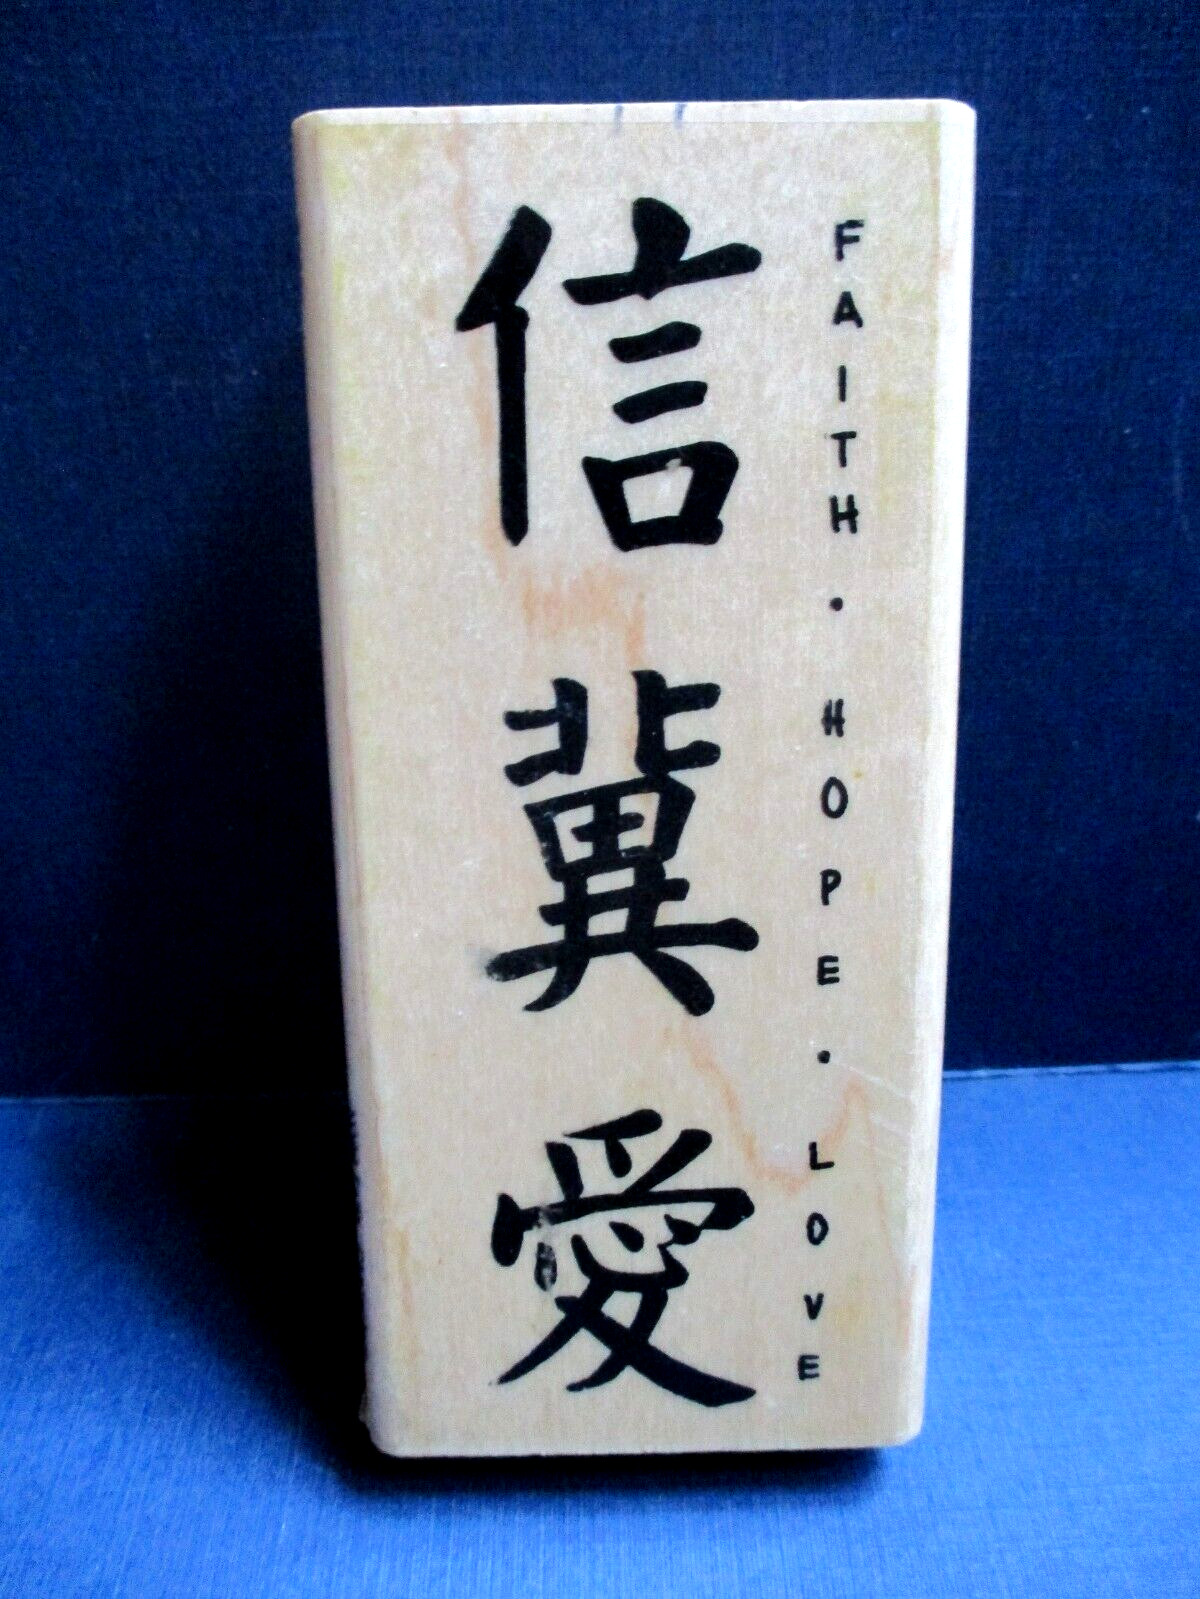 信冀愛
FAITH • HOPE • LOVE